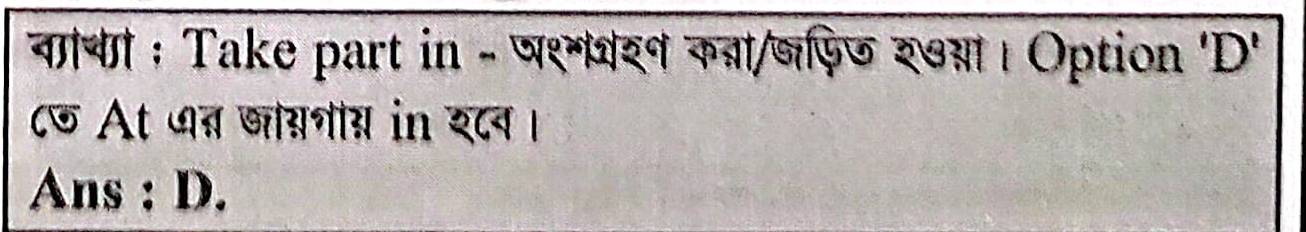 ব্যাখ্যা : Take part in - অংশগ্রহণ করা/জড়িত হওয়া। Option 'D'
তে At এর জায়গায় in হবে।
Ans : D.